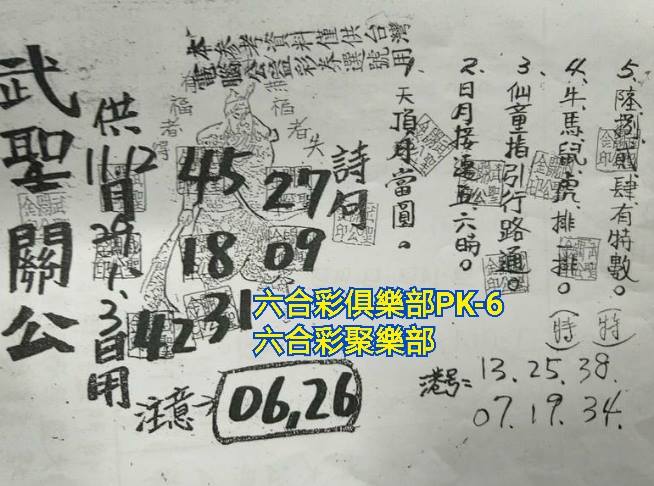 本參考資料僅供台灣
電腦公益彩券選號用
有福者得
無福者失
武聖關公
供11月29、12月1、3日用
詩句
1、天頂月當圓。
2、日月接連五六時。
3、仙童指引行路通。
4、牛馬鼠虎排一排。(特)
5、陸捌貳肆有特數。(特)
45 27
18 09
42 31
注意→ 06,26
港号= 13. 25. 38.
07. 19. 34.
六合彩俱樂部PK-6
六合彩聚樂部